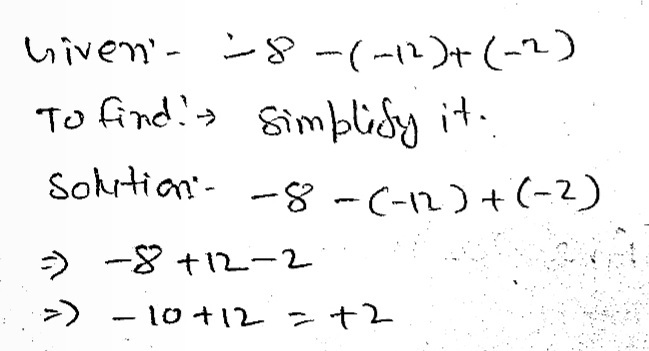 Given:- -8 -(-12)+(-2)
To find:→ Simplify it.
Solution:- -8 -(-12)+(-2)
⇒ -8 +12-2
⇒ -10+12 = +2